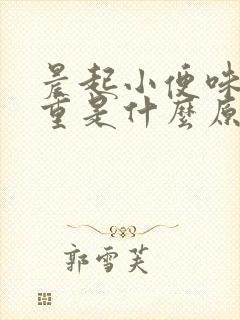 晨起小便味
重是什麼原
郭雪芙